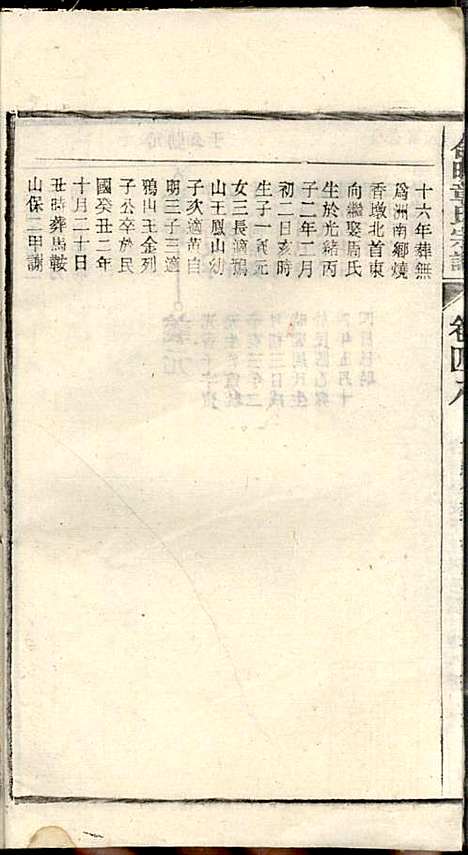 十六年葬無
爲洲南鄉燒
香墩北首東
向繼娶周氏
生於光緒丙
子二年二月
初二日亥時
生子一義元
女三長適鴉
山王鳳山幼
子次適黃自
期三子三適
鴉山王金列
子公卒於民
國癸丑二年
十月二十日
丑時葬馬鞍
山保二甲謝
章氏宗譜
卷四八